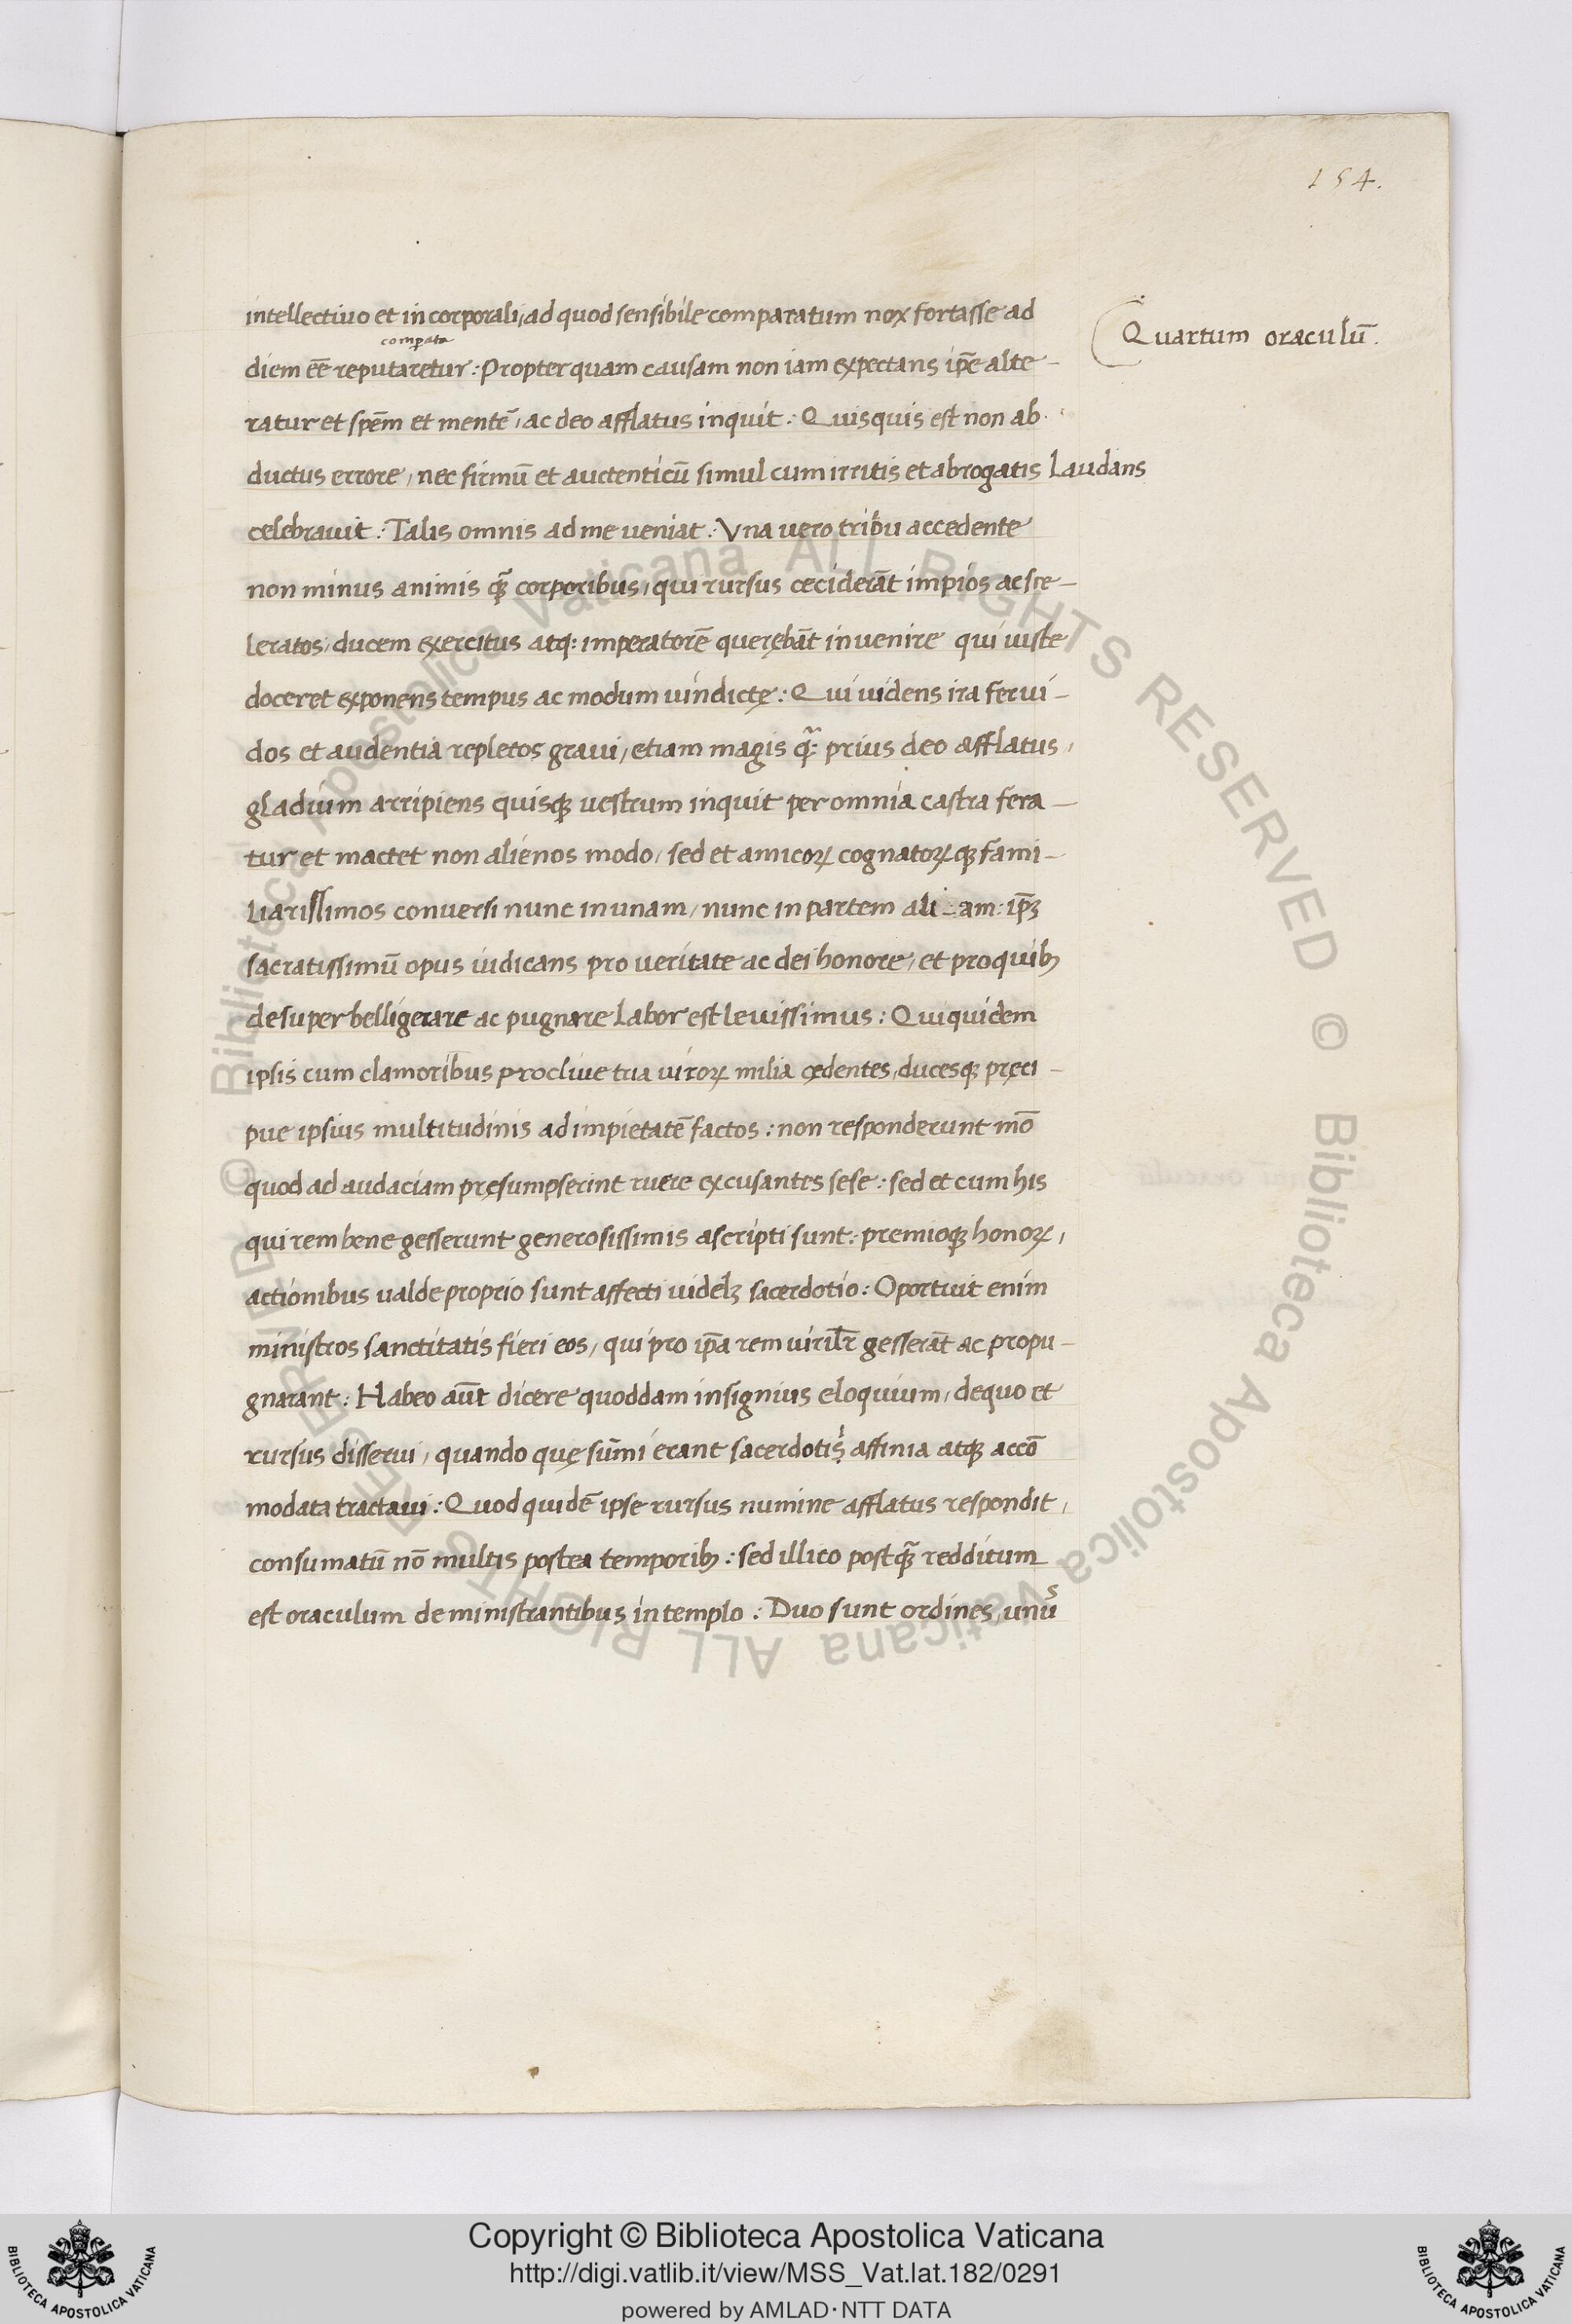 154.
intellectiuo et incorporali, ad quod sensibile comparatum nox fortasse ad
Quartum oraculū.
comp̄ata
diem eē reputaretur: Propter quam causam non iam expectans ip̄e alte-
ratur et spēm et mentē, ac deo afflatus inquit: Quisquis est non ab
ductus errore, nec firmū et auctenticū simul cum irritis et abrogatis laudans
celebrauit: Talis omnis ad me veniat: Vna vero tribu accedente
non minus animis q̃ corporibus, qui rursus ceciderāt impios ac sce-
leratos, ducem exercitus atq: imperatorē querębāt invenire qui iuste
doceret exponens tempus ac modum vindictę: Qui uidens ira fervi-
dos et audentia repletos graui, etiam magis q̃: prius deo afflatus,
gladium arripiens quisqꝫ vestrum inquit per omnia castra fera-
tur et mactet non alienos modo, sed et amicoꝝ cognatoꝝqꝫ fami-
liarissimos conversi nunc in unam, nunc in partem ali-am: ip̄ꝫ
sacratissimū opus iudicans pro veritate ac dei honore, et pro quibꝫ
desuper belligerare ac pugnare labor est levissimus: Qui quidem
ipsis cum clamoribus proclive tria viroꝝ milia cędentes, ducesqꝫ pręci-
pue ipsius multitudinis ad impietatē factos: non responderunt mō
quod ad audaciam pręsumpserint ruere excusantes sese: sed et cum his
qui rem bene gesserunt generosissimis ascripti sunt: premioqꝫ honoꝝ,
actionibus valde proprio sunt affecti videlꝫ sacerdotio: Oportuit enim
ministros sanctitatis fieri eos, qui pro ip̄a rem virilr̄ gesserāt ac propu-
gnarant: Habeo aūt dicere quoddam insignius eloquium, de quo et
rursus disserui, quando quę sūmi erant sacerdotis affinia atqꝫ accō
modata tractaui: Quod quidē ipse rursus numine afflatus respondit,
consumatū nō multis postea temporibꝫ: sed illico postq̃ redditum
est oraculum de ministrantibus in templo: Duo sunt ordines, unus
Copyright © Biblioteca Apostolica Vaticana
http://digi.vatlib.it/view/MSS_Vat.lat.182/0291
powered by AMLAD·NTT DATA
BIBLIOTECA APOSTOLICA VATICANA
BIBLIOTECA APOSTOLICA VATICANA
© Biblioteca Apostolica Vaticana ALL RIGHTS RESERVED © Biblioteca Apostolica Vaticana ALL RIGHTS RESERVED